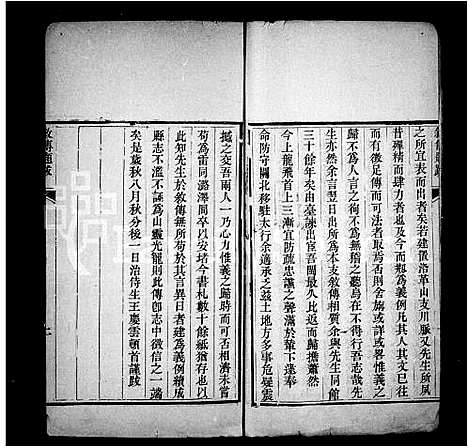 之所宜表而出者矣若建置沿革山支川脈又先生所夙
昔殫精而肆力者想及于今而懸為義例凡其人其文已往
而有徵足傳而可法者取舍則在予奪或詳或畧惟義之
歸不為人言之徇不為無稽之聽烏在其不得行吾志哉先
生亦然余言翌日出所為本支敘傳相質余與先生同館
三十餘年矣由臺諫出宦吾閩最久比返而歸擔蕭然
今上龍飛首三漸宜防疏忠讜之聲滿於輦下遂奉
命防守關北移駐太行余適承乏茲土地方多事危疑震
撼之交吾兩人一乃心力惟義之歸時而可否相濟未嘗
苟為雷同潞澤間卒以安堵今書札數十餘紙猶有存也
此知先生於敘傳無所苟於其言異日者建為義例續成
縣志不濫不誣為山靈光寵則此傳卽志中徵信之一端
矣是歲秋八月秋分後一日治侍生王慶雲頓首謹跋
敘傳題跋